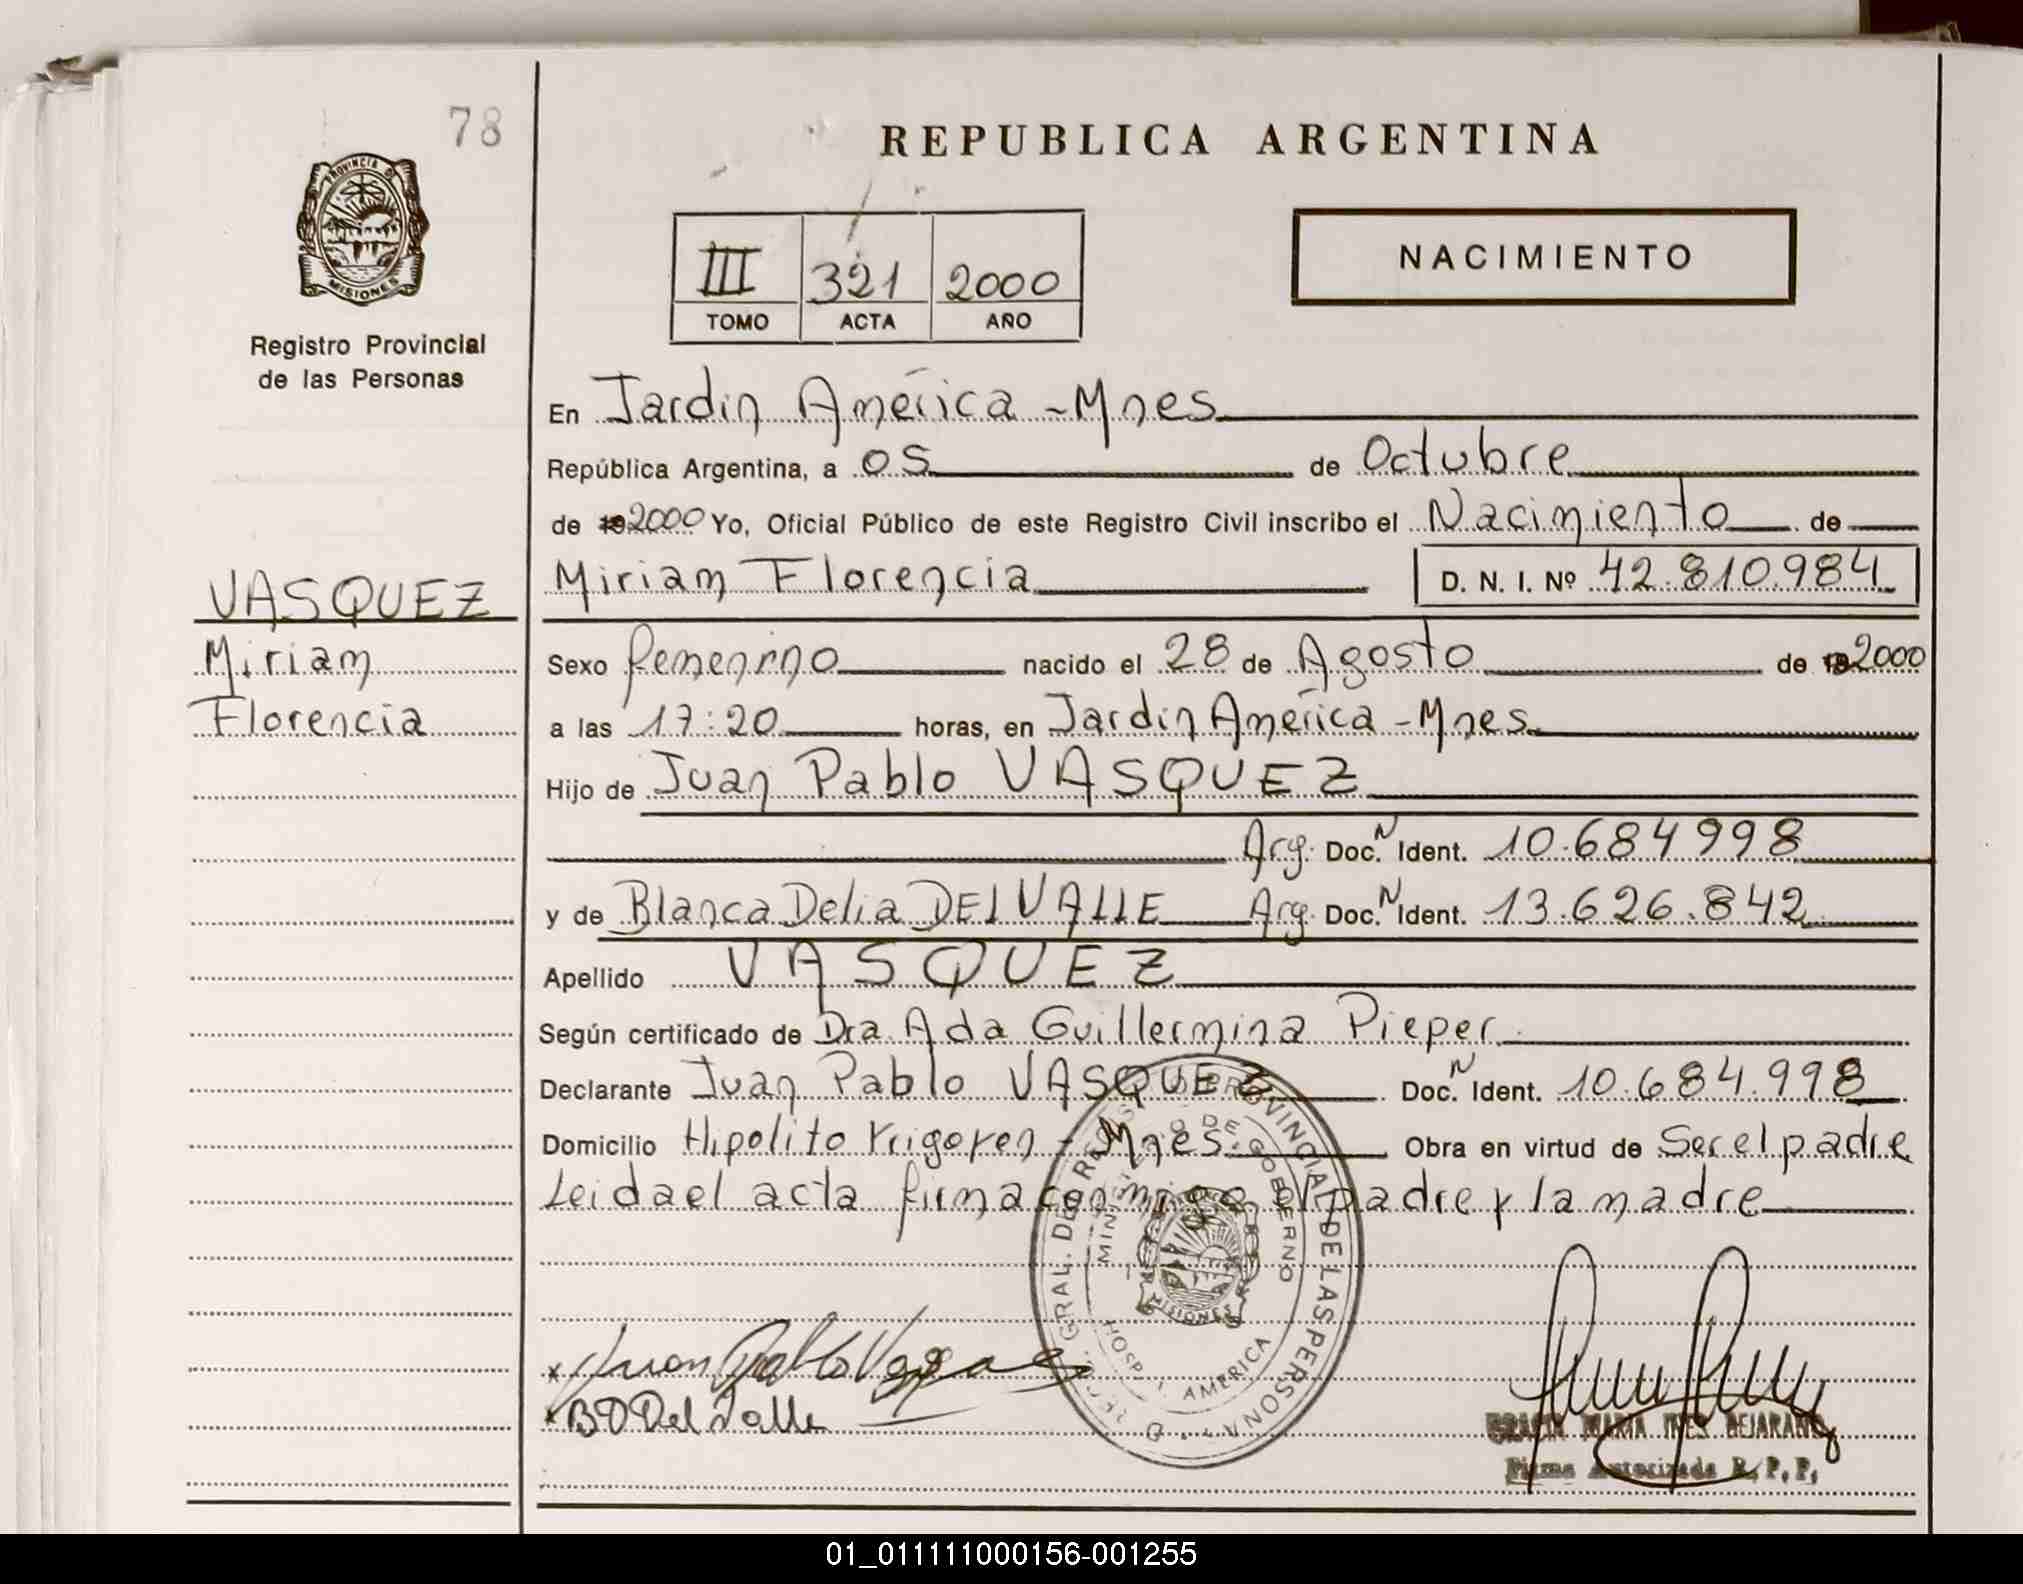 78
PROVINCIA DE
MISIONES
Registro Provincial
de las Personas
VASQUEZ
Miriam
Florencia
REPUBLICA ARGENTINA
III 321 2000
TOMO ACTA AÑO
NACIMIENTO
En Jardín América - Mnes
República Argentina, a 05 de Octubre
de 2000 Yo, Oficial Público de este Registro Civil inscribo el Nacimiento de
Miriam Florencia D. N. I. Nº 42.810.984
Sexo femenino nacido el 28 de Agosto de 2000
a las 17:20 horas, en Jardín América - Mnes
Hijo de Juan Pablo VASQUEZ
Arg. Doc. N Ident. 10.684 998
y de Blanca Delia DEL VALLE Arg. Doc. N Ident. 13.626.842
Apellido VASQUEZ
Según certificado de Dra Ada Guillermina Pieper
Declarante Juan Pablo VASQUEZ Doc. N Ident. 10.684.998
Domicilio Hipolito Yrigoyen - Mnes. Obra en virtud de Ser el padre
Leida el acta firma conmigo el padre y la madre
GRAL. DEL REGISTRO PROVINCIAL DE LAS PERSONAS
MINISTERIO DE GOBIERNO
MISIONES
HOSP. J. AMERICA
x Juan Pablo Vasquez
x B D Del Valle
GRACIA MARIA INES BEJARANO
Firma Autorizada R. P. P.
01_011111000156-001255